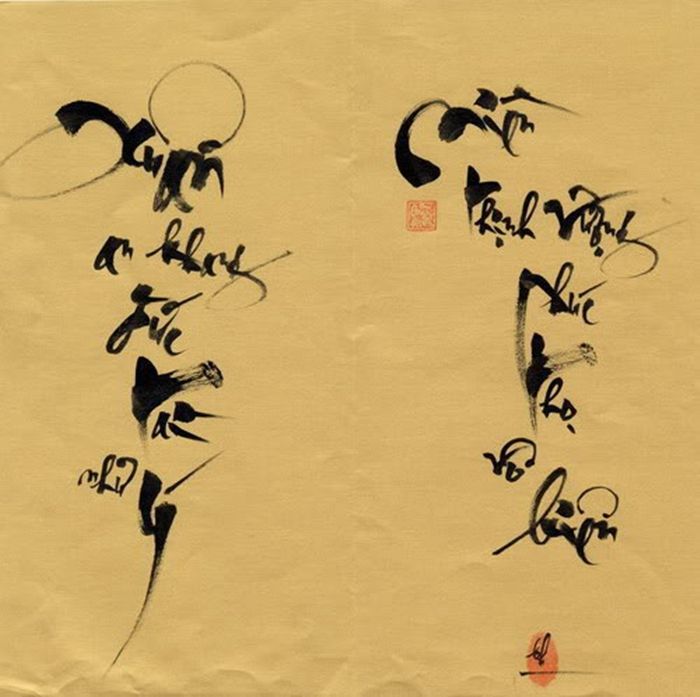 Xuân
an khang
đức
tài
như ý
Niên
thịnh vượng
phúc
thọ
vô
biên